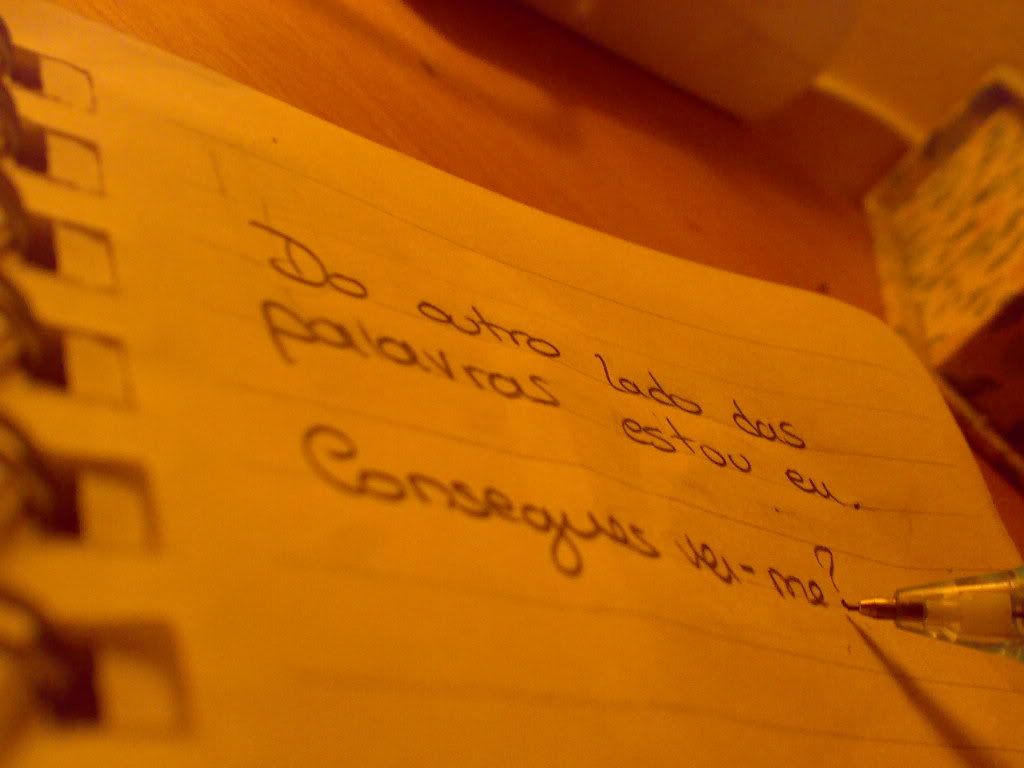 Do outro lado das
palavras estou eu.
Consegues ver-me?